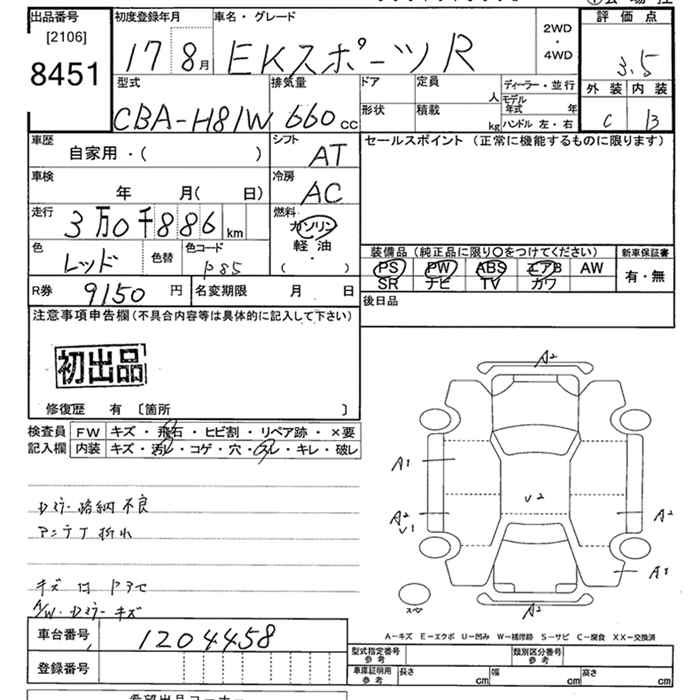 出品番号
[2106]
8451
初度登録年月
17 8月
車名・グレード
EKスポーツR
2WD
・
4WD
評価点
3.5
外装 内装
C B
型式
CBA-H81W
排気量
660cc
ドア
形状
定員
人
積載
kg
ディーラー・並行
モデル年式 年
ハンドル 左・右
車歴
自家用・( )
シフト
AT
セールスポイント (正常に機能するものに限ります)
車検
年 月( 日)
冷房
AC
走行
3万0千886km
燃料
ガソリン
軽油
( ・ )
色
レッド
色替
色コード
P85
装備品(純正品に限り○をつけてください)
PS PW ABS エアB AW
SR ナビ TV カワ
新車保証書
有・無
R券 9150円
名変期限 月 日
後日品
注意事項申告欄(不具合内容等は具体的に記入して下さい)
初出品
修復歴 有 〔箇所 〕
検査員記入欄
FW キズ・飛石・ヒビ割・リペア跡・×要
内装 キズ・汚レ・コゲ・穴・スレ・キレ・破レ
Dミラー格納不良
アンテナ折れ
A/W・Dミラーキズ
A2
A1
U2
A2
U1
A2
A1
スペ
A2
A-キズ E-エクボ U-凹み W-補修跡 S-サビ C-腐食 XX-交換済
車台番号
1204458
登録番号
型式指定番号
参考
類別区分番号
参考
車庫証明用
参考
長さ cm
幅 cm
高さ cm